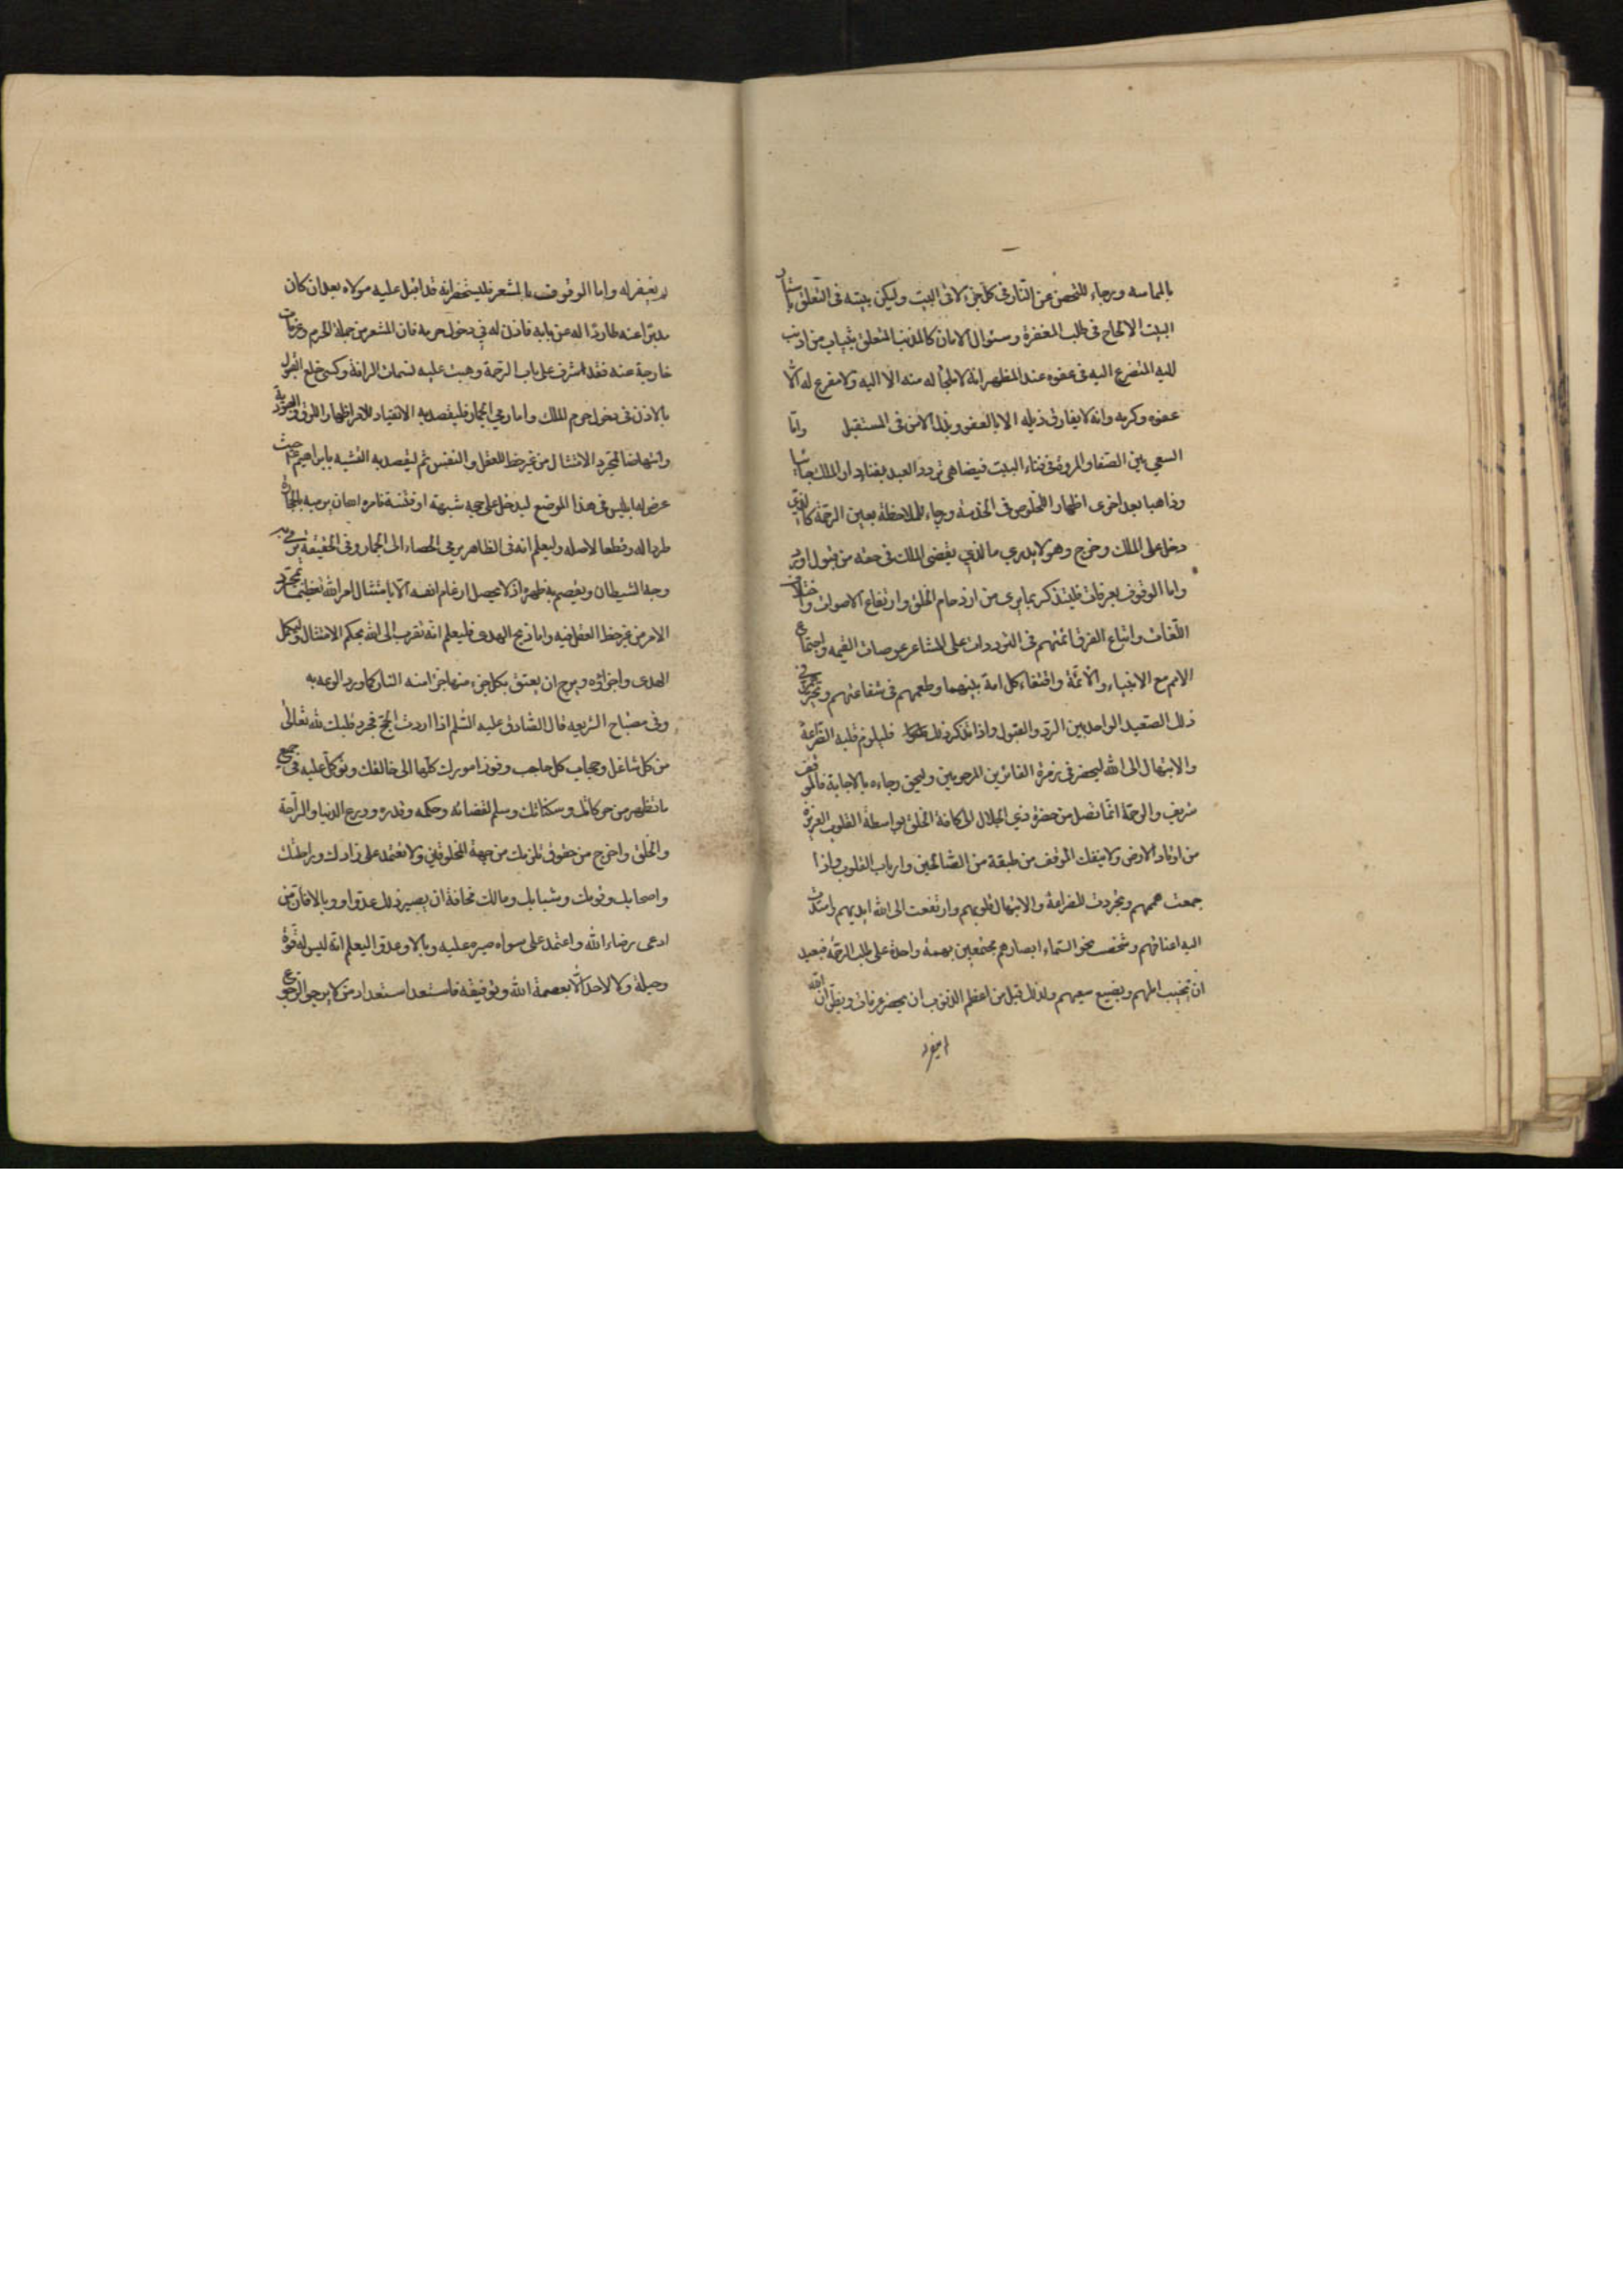 بالمماسه ورجاء للتحصن عن النار فى كل جزء لاقى البيت وليكن نيته فى التعلق باستار
البيت الالحاح فى طلب المغفرة وسئوال الامان كالمذنب المتعلق بثياب من اذنب
اليه المتضرع اليه فى عفوه عنه المظهر انه لا ملجأ له منه الا اليه ولا مفزع له الّا
عفوه وكرمه وانه لا يفارق ذيله الا بالعفو وبذل الامن فى المستقبل وامّا
السعي بين الصفا والمروة فى فناء البيت فيضاهى تردد العبد بفناء دار الملك جائيا
وذاهبا بعد اخرى اظهارا للخلوص فى الخدمة ورجاء للملاحظة بعين الرحمة كالذي
دخل على الملك وخرج وهو لا يدري ما الذي يقضى الملك فى حقه من قبول او رد
واما الوقوف بعرفات فليتذكر بما يرى من ازدحام الخلق وارتفاع الاصوات واختلاف
اللغات واتباع الفرق ائمتهم فى الترددات على المشاعر عرصات القيمه واجتماع
الامم مع الانبياء والائمّة واقتفاء كل امة بنيهما وطمعهم فى شفاعتهم وتحيرهم فى
ذلك الصعيد الواحد بين الرد والقبول واذا تذكر ذلك فليلزم قلبه الضراعة
والابتهال الى الله ليحضر فى زمرة الفائزين المرحومين وليحق رجاءه بالاجابة فالموقف
شريف والرحمة انما تصل من حضرة ذي الجلال الى كافة الخلق بواسطة القلوب العزيزة
من اوتاد الارض ولا ينفك الموقف من طبقة من الصالحين وارباب القلوب واذا
جمعت هممهم وتجردت للضراعة والابتهال قلوبهم وارتفعت الى الله ايديهم وامتدت
اليه اعناقهم وشخصت نحو السماء ابصارهم مجتمعين بهمة واحدة على طلب الرحمة فبعيد
ان يخيب املهم ويضيع سعيهم ولذلك قيل من اعظم الذنوب ان يحضر عرفات ويظن ان الله
لم يغفر له واما الوقوف بالمشعر فليستحضر انه قد اقبل عليه مولاه بعد ان كان
مدبرا عنه طاردا له عن بابه فاذن له في دخول حرمه فان المشعر من جملة الحرم وعرفات
خارجة عنه فقد اشرف على باب الرحمة وهبت عليه نسمات الرافة وكسى خلع القبول
بالاذن فى دخول حرم الملك واما رمي الجمار فليقصد به الانقياد للامر اظهارا للرق والعبودية
وانتهاضا لمجرد الامتثال من غير حظ للعقل والنفس ثم ليقصد به التشبه بابراهيم حيث
عرض له ابليس فى هذا الموضع ليدخل على حجه شبهة او فتنة فامره الله ان يرميه بالحجارة
طردا له وقطعا لاصله وليعلم انه فى الظاهر يرمى الحصاء الى الجمار وفى الحقيقة يرمى به
وجه الشيطان ويقصم به ظهره اذ لا يحصل ارغام انفه الّا بامتثال امر الله تعظيما لمجرد
الامر من غير حظ العقل فيه واما ذبح الهدى فليعلم انه تقرب الى الله بحكم الامتثال وليكمل
الهدى واجزاؤه وبرج ان يعتق بكل جزء منها جزا منه النار كما ورد الوعد به
وفى مصباح الشريعه قال الصادق عليه السّلم اذا اردت الحجّ فجرد قلبك لله تعالى
من كل شاغل وحجاب كل حاجب وفوز امورك كلّها الى خالقك وتوكل عليه فى جميع
ما تظهر من حركاتك وسكناتك وسلم لقضائه وحكمه وقدره وودع الدنيا والراحة
والخلق واخرج من حقوق تلزمك من جهة المخلوقين ولا تعتمد على زادك وراحلتك
واصحابك وقوتك وشبابك ومالك مخافة ان يصير ذلك عدوا ووبالا فان من
ادعى رضاء الله واعتمد على سواه صيره عليه وبالا وعدوا ليعلم انّه ليس له قوّة
وحيلة ولا لاحد الا بعصمة الله وتوفيقه فاستعد استعداد من لا يرجو الرجوع